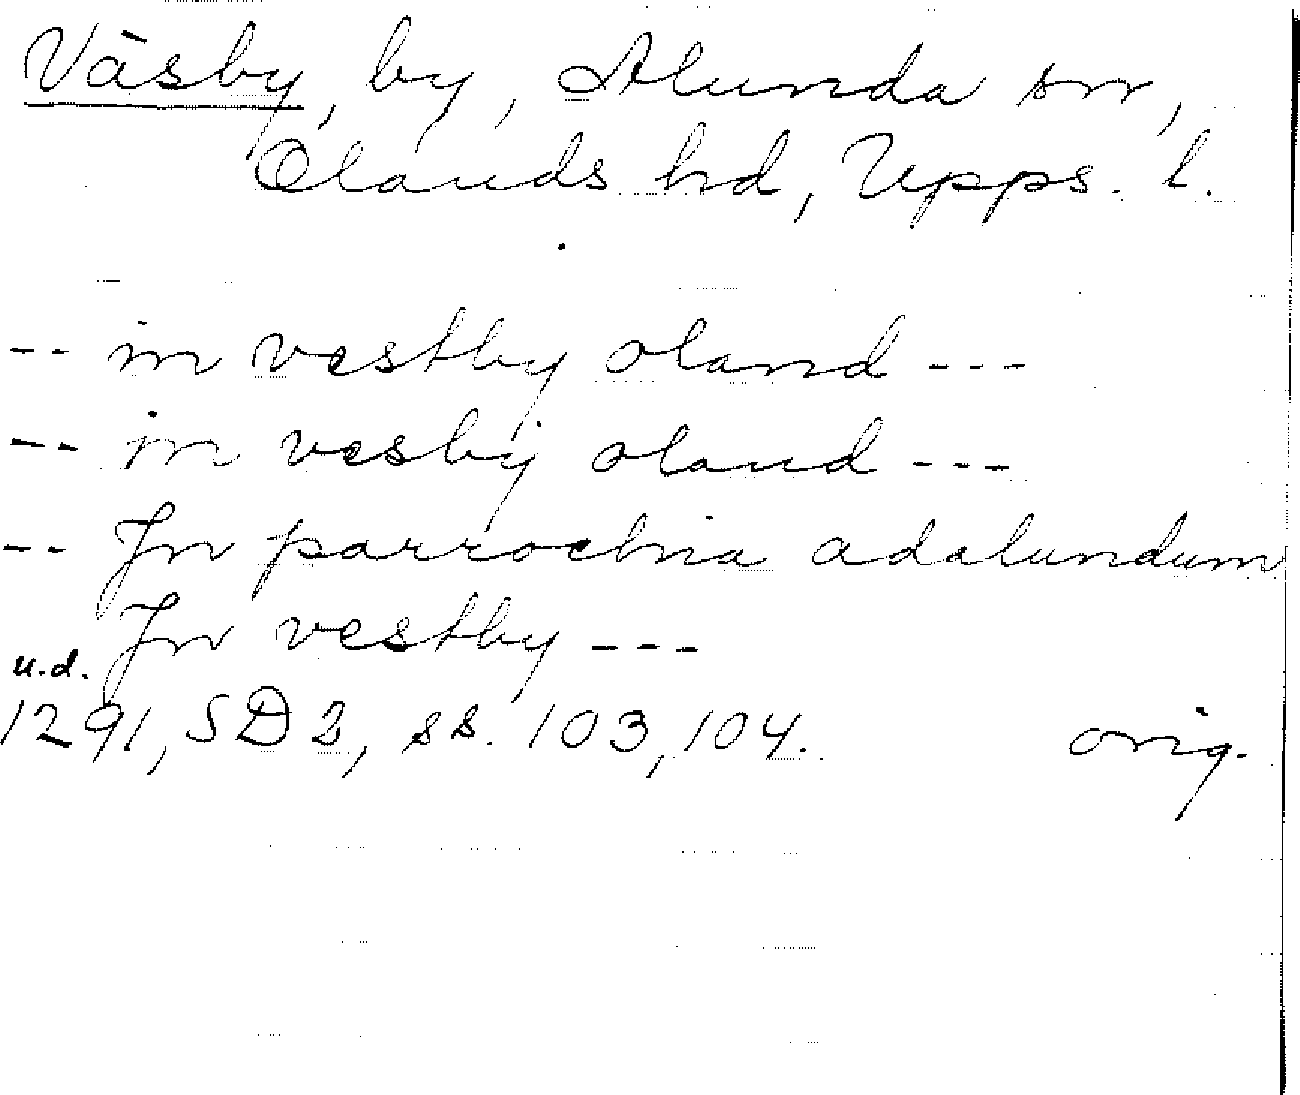 Väsby, by, Alunda sn,
Olands hd, Upps. l.
-- in vestby oland ---
-- in vesby oland ---
-- Jn parrochia adalundum
Jn vestby ---
u.d.
1291, SD 2, ss. 103, 104. orig.